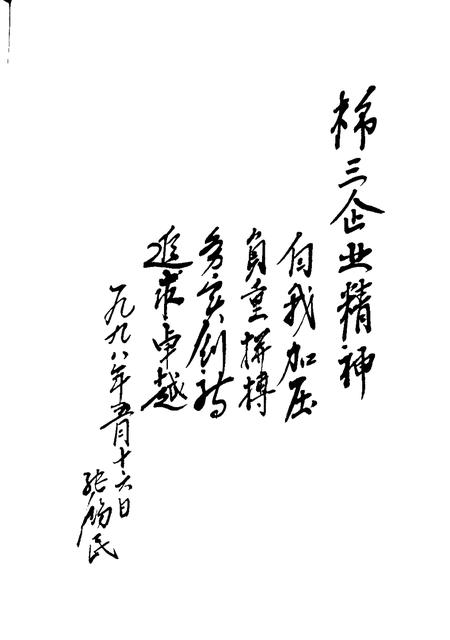 棉三企业精神
自我加压
負重拼搏
务实创新
追求卓越
一九九八年五月十六日
张民